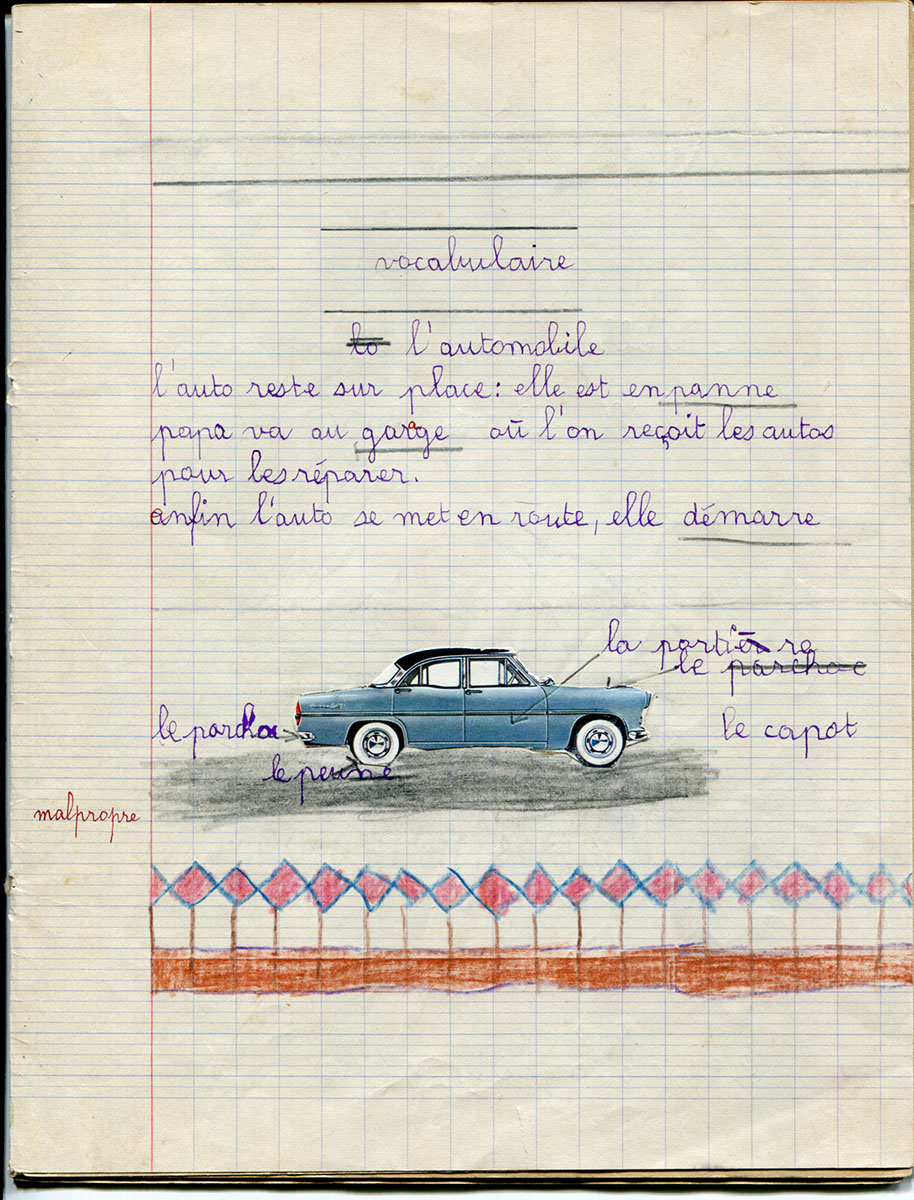 vocabulaire
lo l'automobile
l'auto reste sur place: elle est en panne
papa va au garage où l'on reçoit les autos
pour les réparer.
enfin l'auto se met en route, elle démarre
la portière
le parchoc
le parcho
le capot
le peune
malpropre